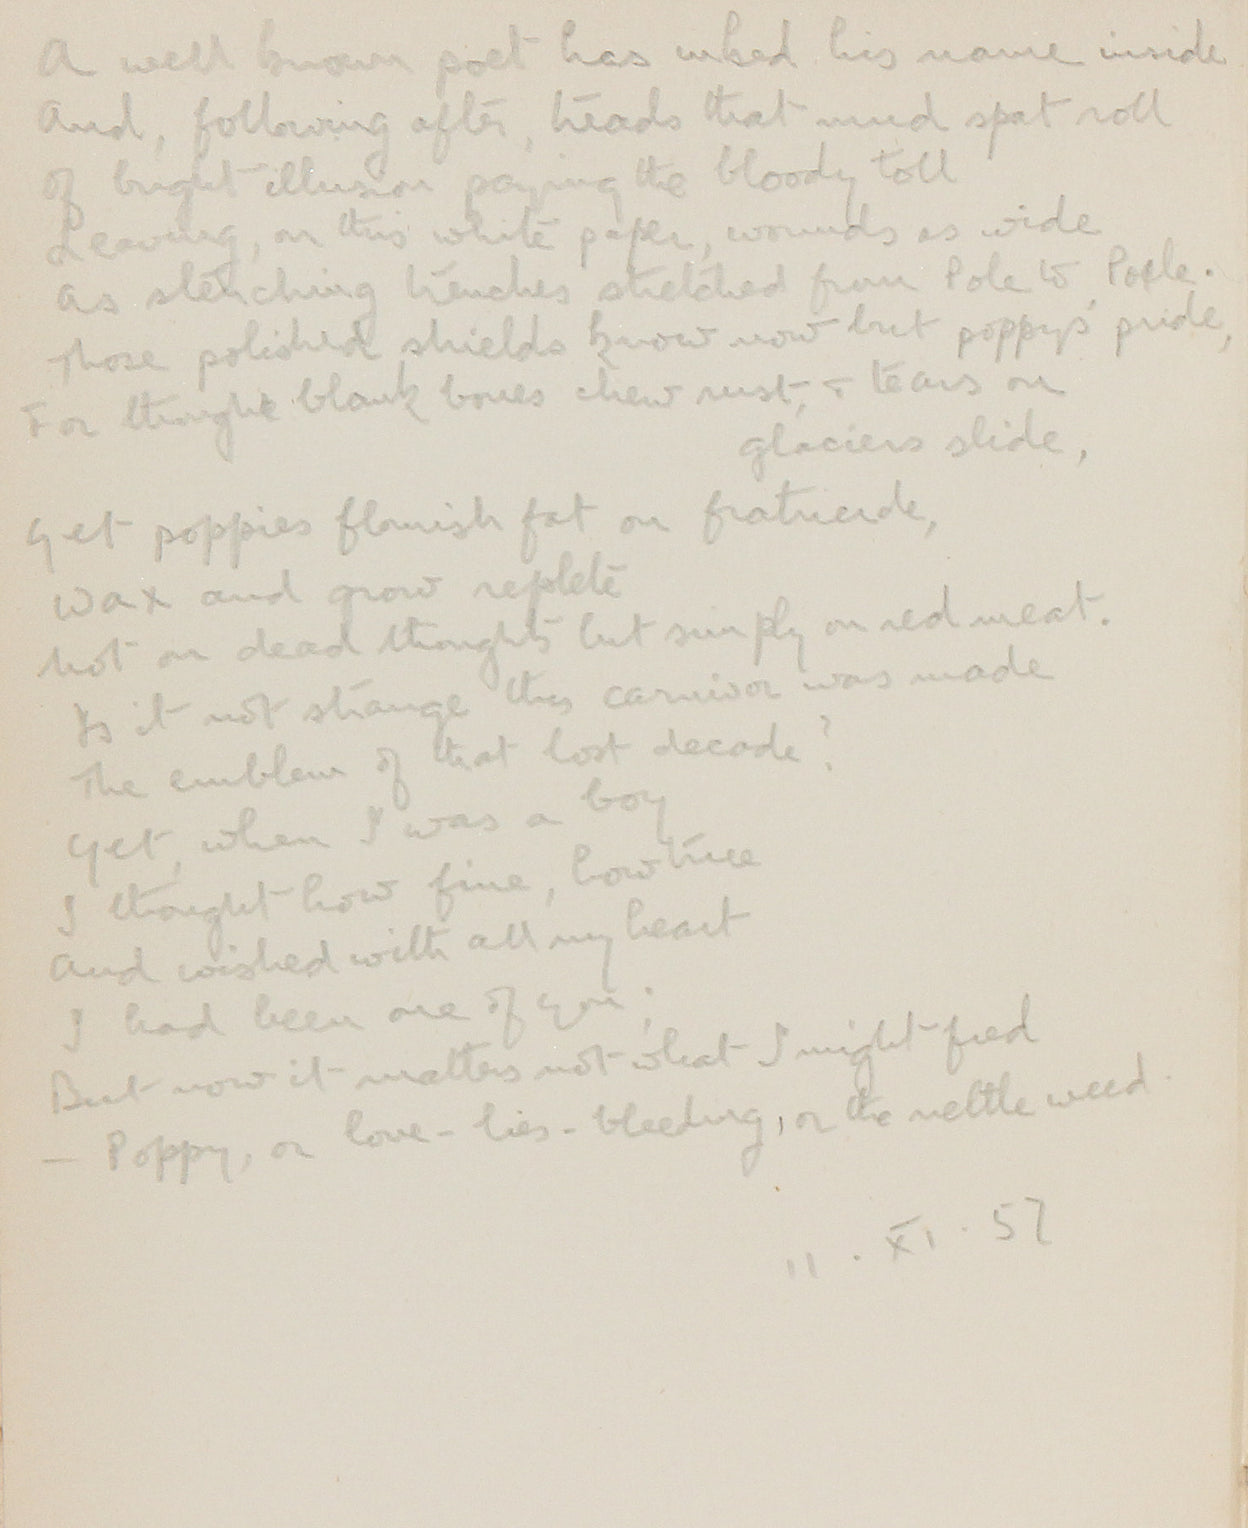 A well known poet has inked his name inside
And, following after, treads that mud spat roll
of bright illusion paying the bloody toll
Leaving, on this white paper, wounds as wide
As stenching trenches stretched from Pole to Pole.
Those polished shields know now but poppy's pride,
For thought blank bones chew rust, & tears on
glaciers slide,
Yet poppies flourish fat on fratricide,
wax and grow replete
Not on dead thoughts but simply on red meat.
Is it not strange this carnivor was made
The emblem of that lost decade?
Yet, when I was a boy
I thought how fine, how true
And wished with all my heart
I had been one of you;
But now it matters not what I might feed
— Poppy, or love-lies-bleeding, or the nettle weed.
11 . XI . 57